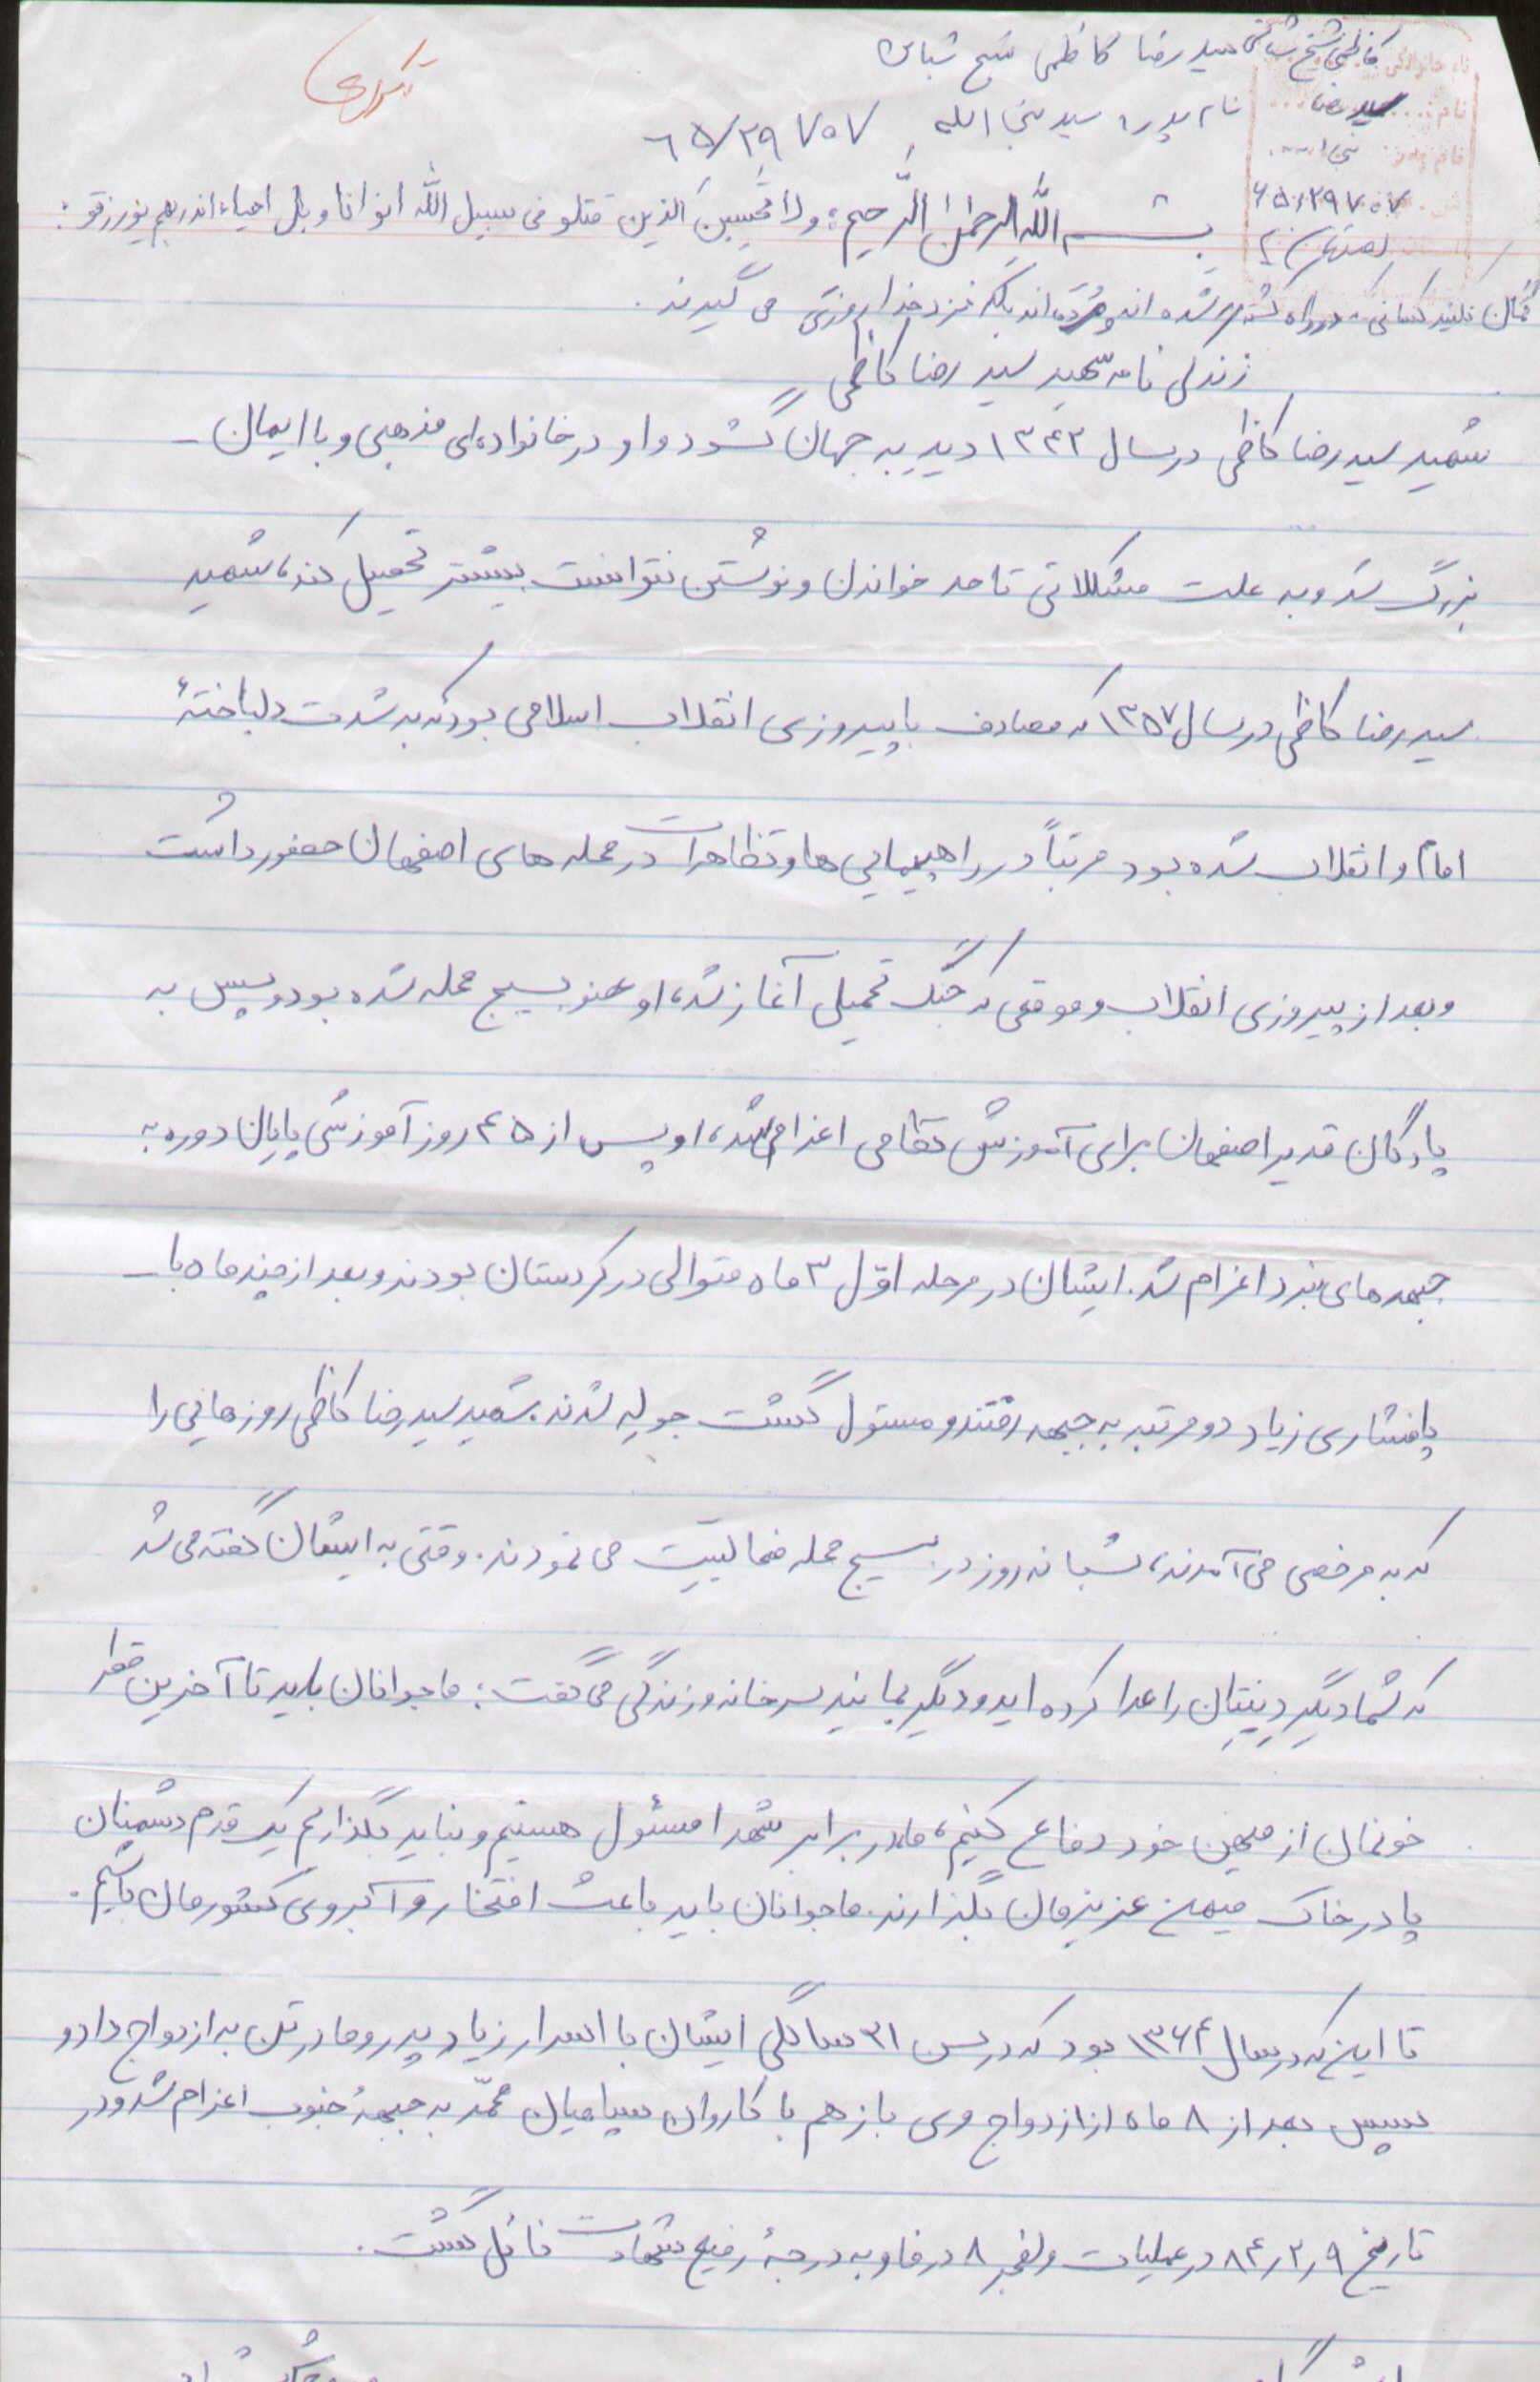 تکراری
کاظمی شیخ شبانی سید رضا کاظمی شیخ شبانی
نام خانوادگی
نام: سید رضا
نام پدر: سید نجی الله ۶۵/۲۹۷۰۷
نام پدر:
۶۵/۲۹۷۰۷
اصفهان
بسم الله الرحمن الرحیم: ولا تحسبن الذین قتلو فی سبیل الله امواتا و بل احیاء اندربهم یورزقو:
گمان نکنید کسانی که در راه کشته شده اند مرده اند بلکه نزد خدا روزی می گیرند.
زندگی نامه شهید سید رضا کاظمی
شهید سید رضا کاظمی در سال ۱۳۴۲ دیده به جهان گشود و او در خانواده ای مذهبی و با ایمان -
بزرگ شد و به علت مشکلاتی تا حد خواندن و نوشتن نتوانست بیشتر تحصیل کند، شهید
سید رضا کاظمی در سال ۱۳۵۷ که مصادف با پیروزی انقلاب اسلامی بود که به شدت دلباختهٔ
امام و انقلاب شده بود مرتباً در راهپیمایی ها و تظاهرات در محله های اصفهان حضور داشت
و بعد از پیروزی انقلاب و موقعی که جنگ تحمیلی آغاز شد، او عضو بسیج محله شده بود و سپس به
پادگان قدیر اصفهان برای آموزش نظامی اعزام شد، او پس از ۴۵ روز آموزشی پایان دوره به
جبهه های نبرد اعزام شد. ایشان در مرحله اوّل ۳ ماه متوالی در کردستان بودند و بعد از چند ماه با -
پافشاری زیاد دو مرتبه به جبهه رفتند و مسئول گشت جوله شدند. شهید سید رضا کاظمی روزهایی را
که به مرخصی می آمدند، شبانه روز در بسیج محله فعالییت می نمودند. وقتی به ایشان گفته می شد
که شما دیگر دِینِتان را ادا کرده اید و دیگر بمانید سر خانه و زندگی می گفت: ما جوانان باید تا آخرین قطره
خونمان از میهن خود دفاع کنیم، ما در برابر شهدا مسئول هستیم و نباید بگذاریم یک قدم دشمنان
پا در خاک میهن عزیزمان بگذارند. ما جوانان باید باعث افتخار و آبروی کشورمان باشیم.
تا این که در سال ۱۳۶۴ بود که در سن ۳۱ سالگی ایشان با اسرار زیاد پدر و مادر تن به ازدواج داد و
سپس بعد از ۸ ماه از ازدواج وی باز هم با کاروان سپاهیان محمّد به جبههٔ جنوب اعزام شد و در
تاریخ ۸۴/۲/۹ در عملیات ولفجر ۸ در فاو به درجهٔ رفیع شهادت نائل گشت.